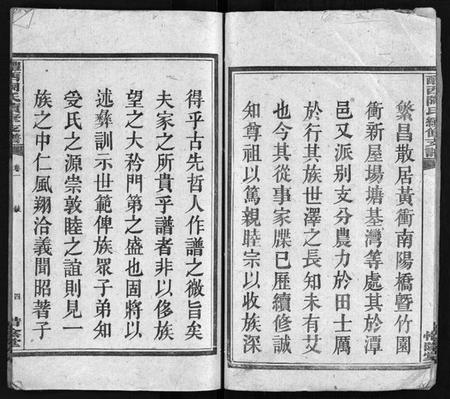 繁昌散居黃衝南陽橋曁竹園
衝新屋場塘基灣等處其於潭
邑又派别支分農力於田士厲
於行其族世澤之長知未有艾
也今其從事家牒已歷續修誠
知尊祖以篤親睦宗以收族深
得乎古先哲人作譜之微旨矣
夫家之所貴乎譜者非以侈族
望之大矜門第之盛也固將以
述彝訓示世範俾族眾子弟知
受氏之源崇敦睦之誼則見一
族之中仁風翔洽義聞昭著子
卷一
四